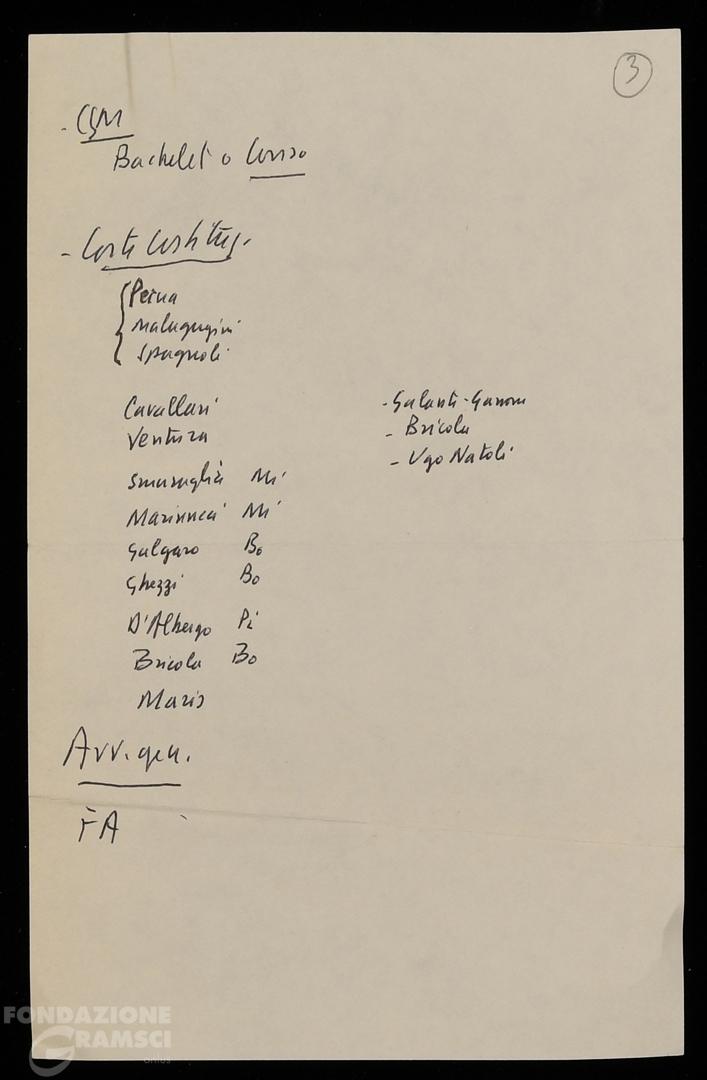 3
- CSM
Bachelet o Conso
- Corte Costituz.
Perna
Malagugini
Spagnoli
Cavallari
Ventura
Smuraglia Mi
Marinucci Mi
Galgano Bo
Ghezzi Bo
D'Albergo Pi
Bricola Bo
Maris
- Galante-Garrone
- Bricola
- Ugo Natoli
Avv. gen.
FA
FONDAZIONE
GRAMSCI
onlus